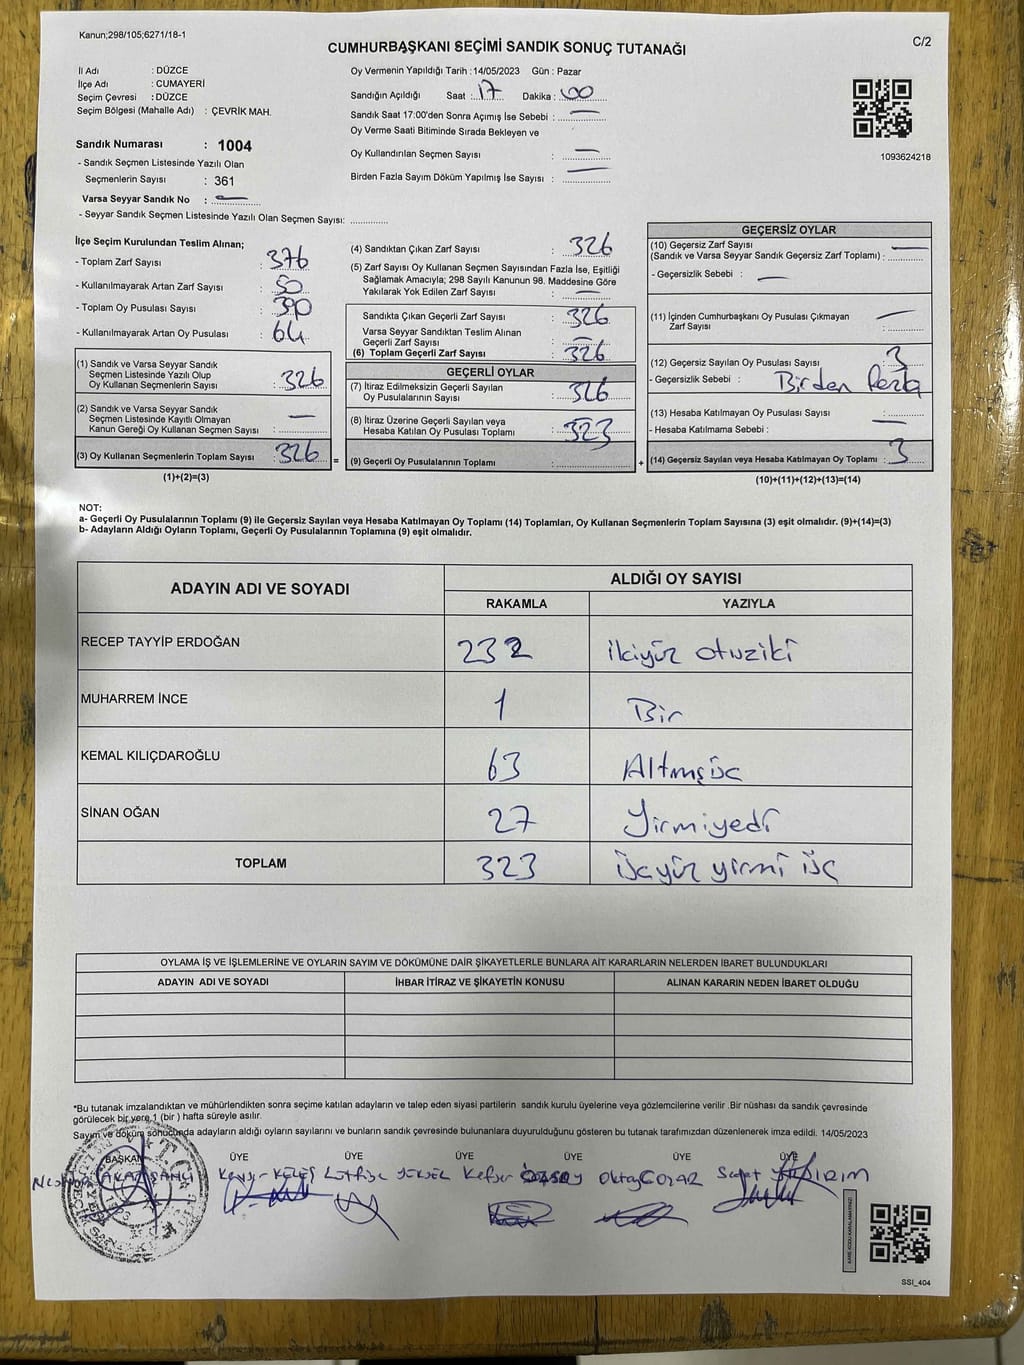 Kanun;298/105;6271/18-1
C/2
CUMHURBAŞKANI SEÇİMİ SANDIK SONUÇ TUTANAĞI
İl Adı : DÜZCE
İlçe Adı : CUMAYERİ
Seçim Çevresi : DÜZCE
Seçim Bölgesi (Mahalle Adı) : ÇEVRİK MAH.
Sandık Numarası : 1004
- Sandık Seçmen Listesinde Yazılı Olan
Seçmenlerin Sayısı : 361
Varsa Seyyar Sandık No : —
- Seyyar Sandık Seçmen Listesinde Yazılı Olan Seçmen Sayısı: ..............
Oy Vermenin Yapıldığı Tarih : 14/05/2023 Gün : Pazar
Sandığın Açıldığı Saat : 17 Dakika : 00
Sandık Saat 17:00'den Sonra Açımış İse Sebebi : —
Oy Verme Saati Bitiminde Sırada Bekleyen ve
Oy Kullandırılan Seçmen Sayısı : —
Birden Fazla Sayım Döküm Yapılmış İse Sayısı : —
1093624218
İlçe Seçim Kurulundan Teslim Alınan;
- Toplam Zarf Sayısı : 376
- Kullanılmayarak Artan Zarf Sayısı : 50
- Toplam Oy Pusulası Sayısı : 390
- Kullanılmayarak Artan Oy Pusulası : 64
(1) Sandık ve Varsa Seyyar Sandık
Seçmen Listesinde Yazılı Olup
Oy Kullanan Seçmenlerin Sayısı : 326
(2) Sandık ve Varsa Seyyar Sandık
Seçmen Listesinde Kayıtlı Olmayan
Kanun Gereği Oy Kullanan Seçmen Sayısı : —
(3) Oy Kullanan Seçmenlerin Toplam Sayısı : 326 =
(1)+(2)=(3)
(4) Sandıktan Çıkan Zarf Sayısı : 326
(5) Zarf Sayısı Oy Kullanan Seçmen Sayısından Fazla İse, Eşitliği
Sağlamak Amacıyla; 298 Sayılı Kanunun 98. Maddesine Göre
Yakılarak Yok Edilen Zarf Sayısı : —
Sandıkta Çıkan Geçerli Zarf Sayısı : 326
Varsa Seyyar Sandıktan Teslim Alınan
Geçerli Zarf Sayısı : —
(6) Toplam Geçerli Zarf Sayısı : 326
GEÇERLİ OYLAR
(7) İtiraz Edilmeksizin Geçerli Sayılan
Oy Pusulalarının Sayısı : 326
(8) İtiraz Üzerine Geçerli Sayılan veya
Hesaba Katılan Oy Pusulası Toplamı : 323
(9) Geçerli Oy Pusulalarının Toplamı : .............. +
GEÇERSİZ OYLAR
(10) Geçersiz Zarf Sayısı —
(Sandık ve Varsa Seyyar Sandık Geçersiz Zarf Toplamı) : ..........
- Geçersizlik Sebebi : —
(11) İçinden Cumhurbaşkanı Oy Pusulası Çıkmayan —
Zarf Sayısı : ..........
(12) Geçersiz Sayılan Oy Pusulası Sayısı : 3
- Geçersizlik Sebebi : Birden Fazla
(13) Hesaba Katılmayan Oy Pusulası Sayısı : ..........
- Hesaba Katılmama Sebebi : —
(14) Geçersiz Sayılan veya Hesaba Katılmayan Oy Toplamı : 3
(10)+(11)+(12)+(13)=(14)
NOT:
a- Geçerli Oy Pusulalarının Toplamı (9) ile Geçersiz Sayılan veya Hesaba Katılmayan Oy Toplamı (14) Toplamları, Oy Kullanan Seçmenlerin Toplam Sayısına (3) eşit olmalıdır. (9)+(14)=(3)
b- Adayların Aldığı Oyların Toplamı, Geçerli Oy Pusulalarının Toplamına (9) eşit olmalıdır.
ADAYIN ADI VE SOYADI
ALDIĞI OY SAYISI
RAKAMLA YAZIYLA
RECEP TAYYİP ERDOĞAN 232 ikiyüz otuziki
MUHARREM İNCE 1 Bir
KEMAL KILIÇDAROĞLU 63 Altmışüç
SİNAN OĞAN 27 Yirmiyedi
TOPLAM 323 üçyüz yirmi üç
OYLAMA İŞ VE İŞLEMLERİNE VE OYLARIN SAYIM VE DÖKÜMÜNE DAİR ŞİKAYETLERLE BUNLARA AİT KARARLARIN NELERDEN İBARET BULUNDUKLARI
ADAYIN ADI VE SOYADI İHBAR İTİRAZ VE ŞİKAYETİN KONUSU ALINAN KARARIN NEDEN İBARET OLDUĞU
*Bu tutanak imzalandıktan ve mühürlendikten sonra seçime katılan adayların ve talep eden siyasi partilerin sandık kurulu üyelerine veya gözlemcilerine verilir .Bir nüshası da sandık çevresinde
görülecek bir yere 1 (bir ) hafta süreyle asılır.
Sayım ve döküm sonucunda adayların aldığı oyların sayılarını ve bunların sandık çevresinde bulunanlara duyurulduğunu gösteren bu tutanak tarafımızdan düzenlenerek imza edildi. 14/05/2023
BAŞKAN ÜYE ÜYE ÜYE ÜYE ÜYE ÜYE
KELEŞ Lütfiye YÜKSEL ÖZSOY Oktay COŞAR YILDIRIM
SSI_404